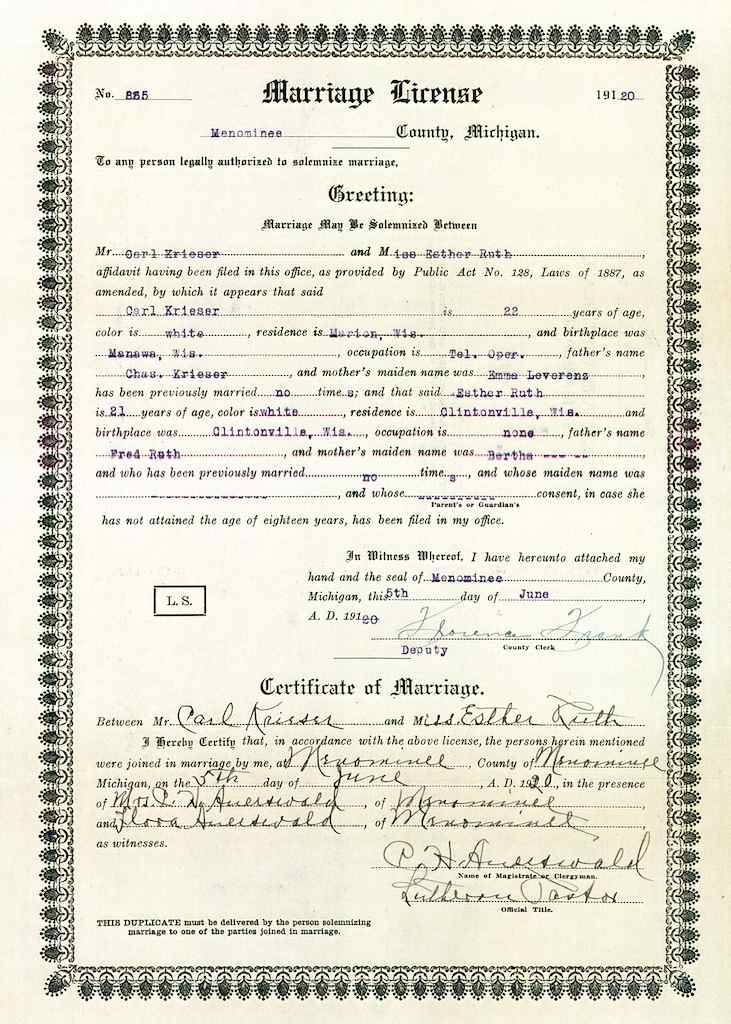 No. 885 Marriage License 191 20
Menominee County, Michigan.
To any person legally authorized to solemnize marriage,
Greeting:
Marriage May Be Solemnized Between
Mr. Carl Krieser and Miss Esther Ruth,
affidavit having been filed in this office, as provided by Public Act No. 128, Laws of 1887, as
amended, by which it appears that said
Carl Krieser is 22 years of age,
color is white, residence is Marion, Wis., and birthplace was
Manawa, Wis., occupation is Tel. Oper., father's name
Chas. Krieser, and mother's maiden name was Emma Leverenz
has been previously married no time s; and that said Esther Ruth
is 21 years of age, color is white, residence is Clintonville, Wis. and
birthplace was Clintonville, Wis., occupation is none, father's name
Fred Ruth, and mother's maiden name was Bertha --- --,
and who has been previously married no time s, and whose maiden name was
---------------, and whose ---------- consent, in case she
Parent's or Guardian's
has not attained the age of eighteen years, has been filed in my office.
In Witness Whereof, I have hereunto attached my
hand and the seal of Menominee County,
Michigan, this 5th day of June
A. D. 191 20
L. S.
Florence Frank
Deputy County Clerk
Certificate of Marriage.
Between Mr. Carl Krieser and Miss. Esther Ruth
I Hereby Certify that, in accordance with the above license, the persons herein mentioned
were joined in marriage by me, at Menominee, County of Menominee
Michigan, on the 5th day of June, A. D. 1920, in the presence
of Mrs. C. H. Auerswald, of Menominee
and Flora Auerswald, of Menominee,
as witnesses.
C. H. Auerswald
Name of Magistrate or Clergyman.
Lutheran Pastor
Official Title.
THIS DUPLICATE must be delivered by the person solemnizing
marriage to one of the parties joined in marriage.